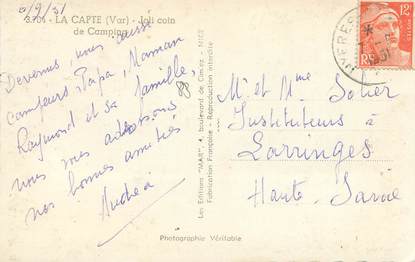 6/9/51
3704 - LA CAPTE (Var) - Joli coin
de Camping
Devenus, nous aussi
campeurs, Papa, Maman
Raymond et sa famille,
nous vous adressons
nos bonnes amitiés
Andréa
Les Editions "MAR", 4, boulevard de Cimiez - NICE
Fabrication Française - Reproduction Interdite
Photographie Véritable
HYERES
12F
POSTES
RF
M. et Mme Solier
Instituteurs à
Larringes
Haute Savoie